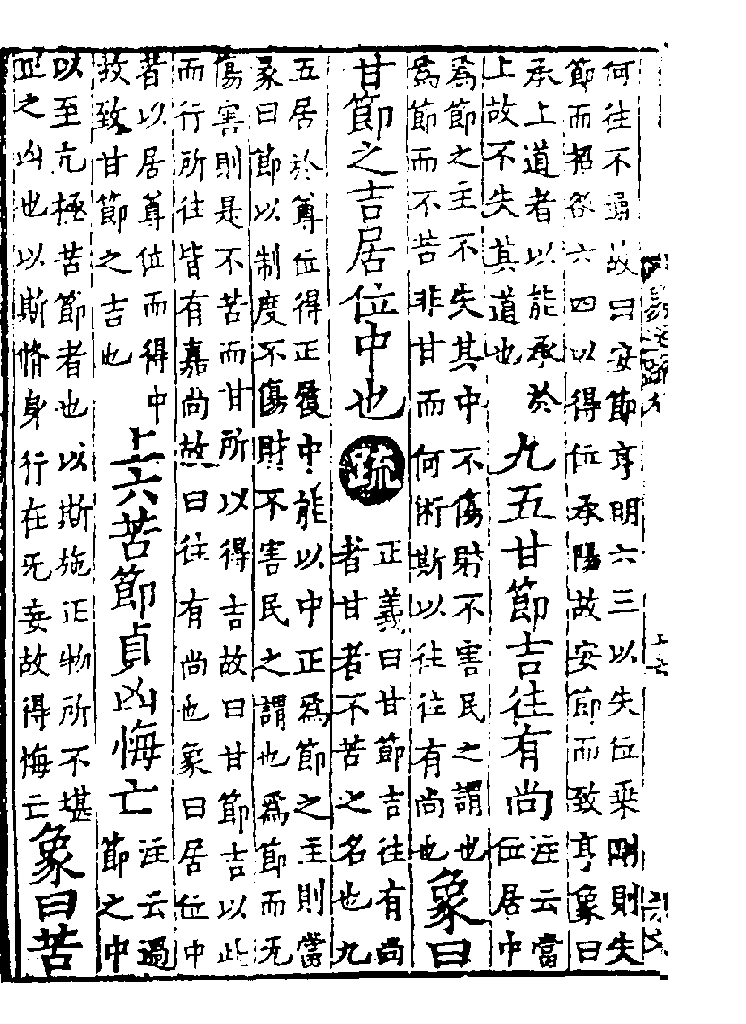 何往不通故曰安節亨明六三以失位乘剛則失
節而招咎六四以得位承陽故安節而致亨象曰
承上道者以能承於
上故不失其道也
九五甘節吉往有尚
注云當
位居中
為節之主不失其中不傷財不害民之謂也
為節而不苦非甘而何術斯以往往有尚也
象曰
甘節之吉居位中也
疏
正義曰甘節吉往有尚
者甘者不苦之名也九
五居於尊位得正履中能以中正為節之主則當
彖曰節以制度不傷財不害民之謂也為節而无
傷害則是不苦而甘所以得吉故曰甘節吉以此
而行所往皆有嘉尚故曰往有尚也象曰居位中
者以居尊位而得中
故致甘節之吉也
上六苦節貞凶悔亡
注云過
節之中
以至亢極苦節者也以斯施正物所不堪
正之凶也以斯脩身行在无妄故得悔亡
象曰苦